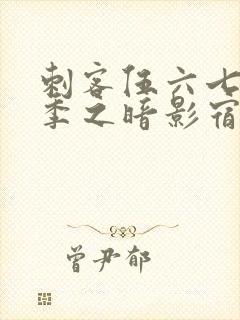 刺客伍六七
季之暗影宿
曾尹郁